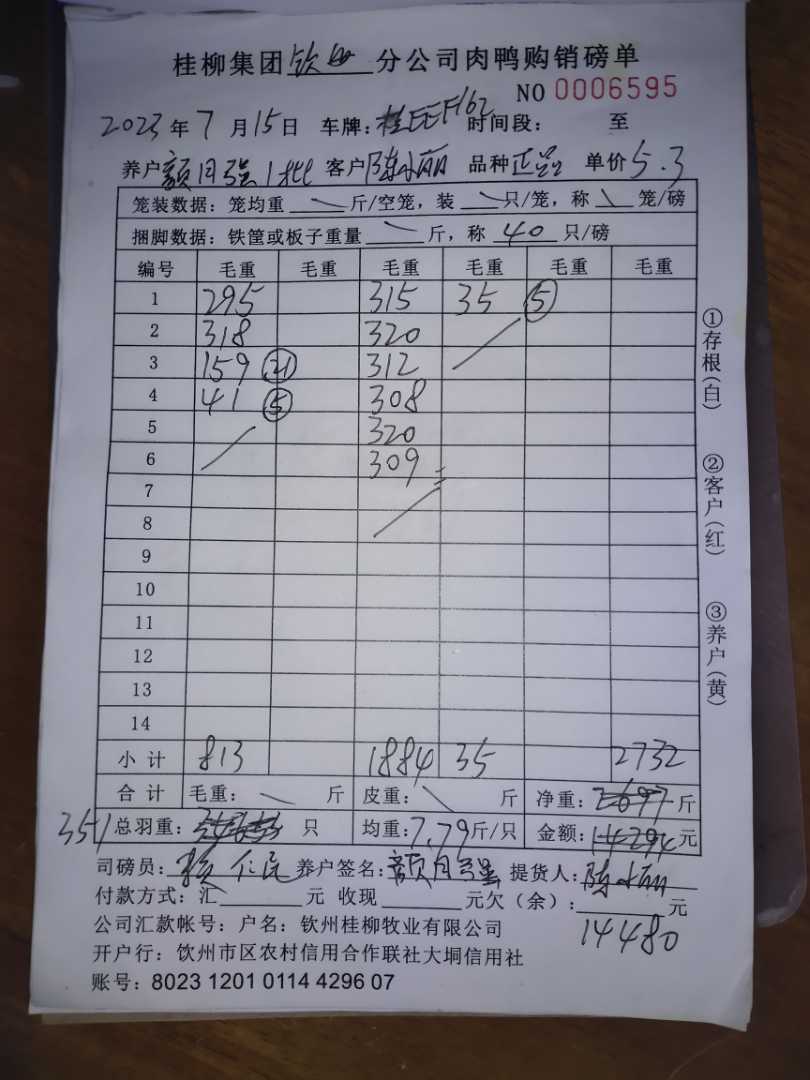 桂柳集团钦州分公司肉鸭购销磅单
NO 0006595
2023年7月15日 车牌:桂EEF162 时间段: 至
养户 颜月强1批 客户 陈小丽 品种 正品 单价5.3
笼装数据:笼均重 斤/空笼,装 只/笼,称 笼/磅
捆脚数据:铁筐或板子重量 斤,称 40 只/磅
编号 毛重 毛重 毛重 毛重 毛重 毛重
1 295 315 35 ⑤
2 318 320
3 159 ㉑ 312
4 41 ⑤ 308
5 320
6 309
7
8
9
10
11
12
13
14
小计 813 1884 35 2732
合计 毛重: 斤 皮重: 斤 净重:2697斤
351 总羽重: 只 均重:7.79斤/只 金额:14294元
司磅员: 仁民 养户签名:颜月强 提货人:陈小丽
付款方式:汇 元 收现 元欠(余): 元
14480
公司汇款帐号:户名:钦州桂柳牧业有限公司
开户行:饮州市区农村信用合作联社大垌信用社
账号:8023 1201 0114 4296 07
①存根(白)
②客户(红)
③养户(黄)